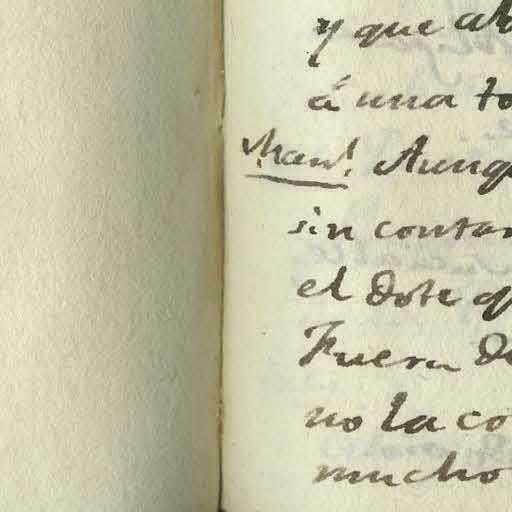 y que
á una
Man.l Aunq
sin contar
el dote
Fuera de
no la co
mucho